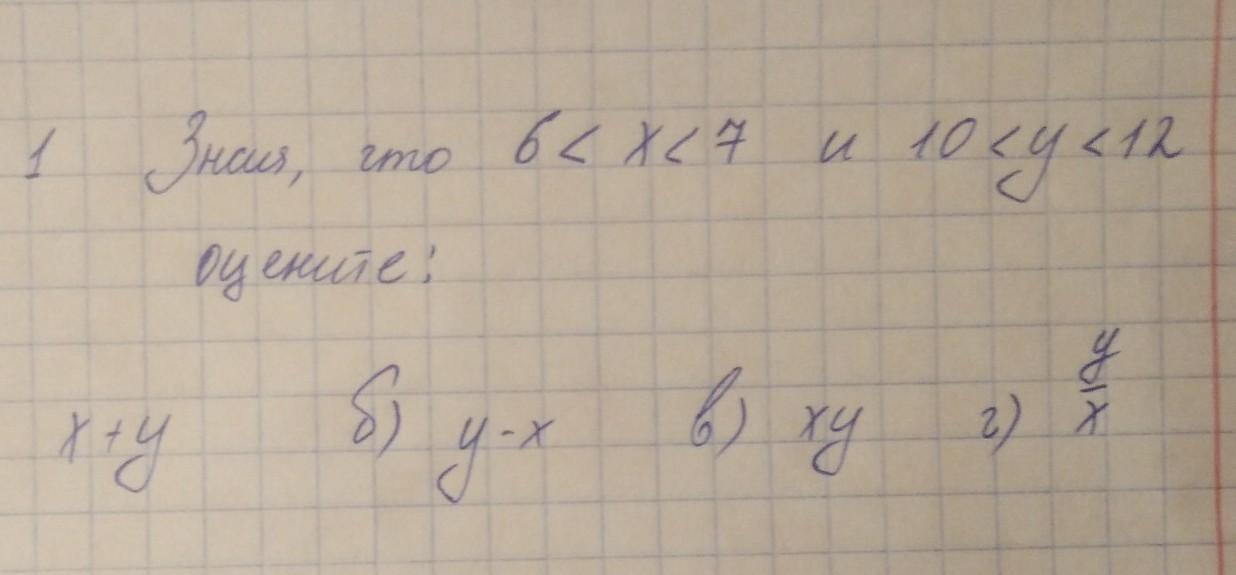 1 Зная, что 6 < x < 7 и 10 < y < 12
оцените:
x + y б) y - x в) xy г) y/x